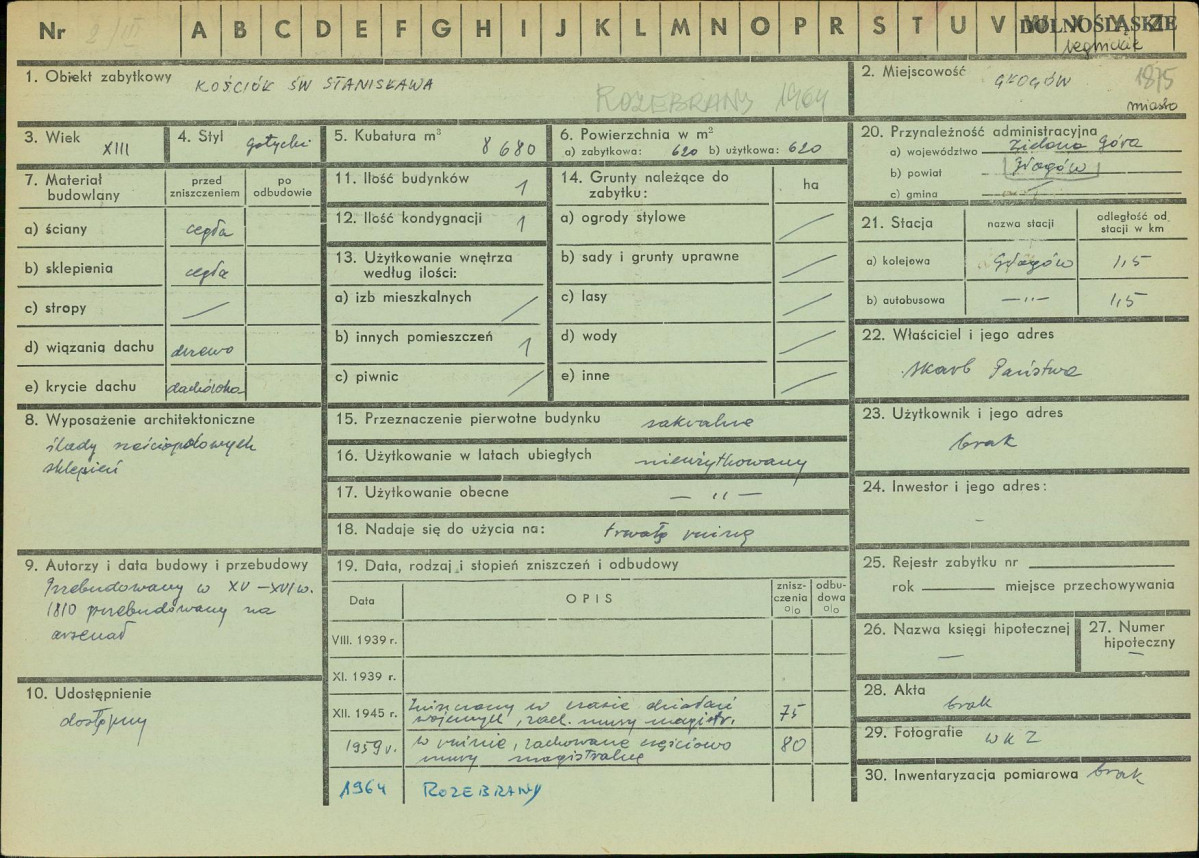 Nr 2/III A B C D E F G H I J K L M N O P R S T U V W X Y Z DOLNOŚLĄSKIE
1. Obiekt zabytkowy KOŚCIÓŁ ŚW STANISŁAWA
ROZEBRANY 1964
2. Miejscowość GŁOGÓW 1875
miasto
3. Wiek XIII
4. Styl gotycki
5. Kubatura m³ 8680
6. Powierzchnia w m²
a) zabytkowa: 620 b) użytkowa: 620
7. Materiał budowlany
przed zniszczeniem
po odbudowie
a) ściany cegła
b) sklepienia cegła
c) stropy —
d) wiązania dachu drzewo
e) krycie dachu dachówka
8. Wyposażenie architektoniczne
ślady sześciopolowych
sklepień
9. Autorzy i data budowy i przebudowy
Przebudowany w XV – XVI w.
1810 przebudowany na
arsenał
10. Udostępnienie
dostępny
11. Ilość budynków 1
12. Ilość kondygnacji 1
13. Użytkowanie wnętrza
według ilości:
a) izb mieszkalnych /
b) innych pomieszczeń 1
c) piwnic /
14. Grunty należące do
zabytku:
ha
a) ogrody stylowe /
b) sady i grunty uprawne /
c) lasy /
d) wody /
e) inne /
15. Przeznaczenie pierwotne budynku sakralne
16. Użytkowanie w latach ubiegłych nieużytkowany
17. Użytkowanie obecne — " —
18. Nadaje się do użycia na: trwałą ruinę
19. Data, rodzaj i stopień zniszczeń i odbudowy
Data
OPIS
znisz-
czenia
o/o
odbu-
dowa
o/o
VIII. 1939 r.
XI. 1939 r.
XII. 1945 r. Zniszczony w czasie działań
wojennych, zach. mury magistr. 75
1959 r. w ruinie, zachowane częściowo
mury magistralne 80
1964 ROZEBRANY
20. Przynależność administracyjna
a) województwo Zielona Góra
b) powiat Głogów
c) gmina —
21. Stacja
nazwa stacji
odległość od
stacji w km
a) kolejowa Głogów 1,5
b) autobusowa — " — 1,5
22. Właściciel i jego adres
Skarb Państwa
23. Użytkownik i jego adres
brak
24. Inwestor i jego adres:
–
25. Rejestr zabytku nr
rok miejsce przechowywania
26. Nazwa księgi hipotecznej
—
27. Numer
hipoteczny
—
28. Akta
brak
29. Fotografie WKZ
30. Inwentaryzacja pomiarowa brak